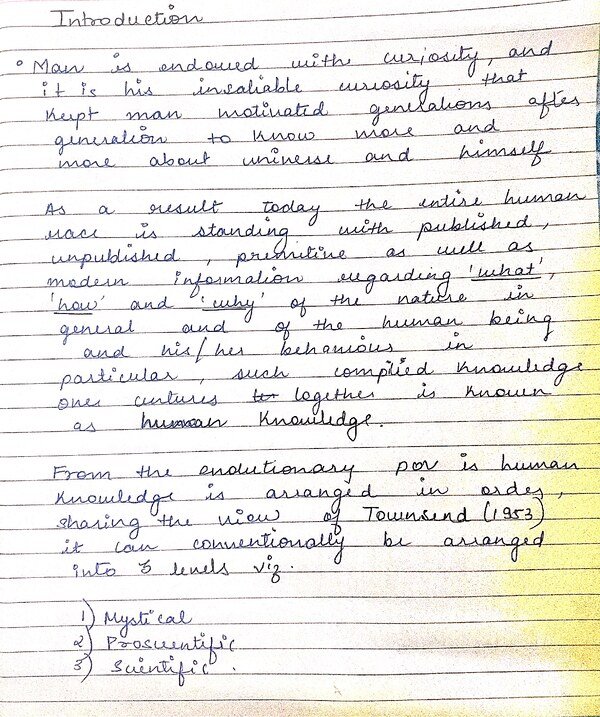 Introduction
• Man is endowed with curiosity, and
it is his insaliable curiosity that
kept man motivated generations after
generation to know more and
more about universe and himself
As a result today the entire human
race is standing with published,
unpublished, primitive as well as
modern information regarding 'what',
'how' and 'why' of the nature in
general and of the human being
and his/her behaviour in
particular, such complied knowledge
over centures together is known
as human knowledge.
From the evolutionary pov is human
knowledge is arranged in order,
sharing the view of Townsend (1953)
it can conventionally be arranged
into 3 levels viz.
1) Mystical
2) Proscientific
3) Scientific.